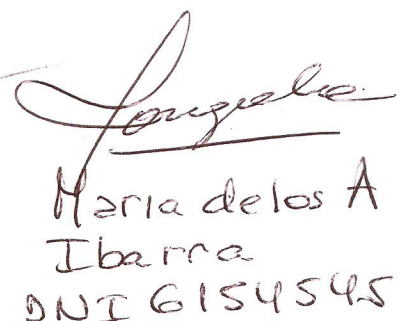 Maria de los A
Ibarra
DNI 6154545